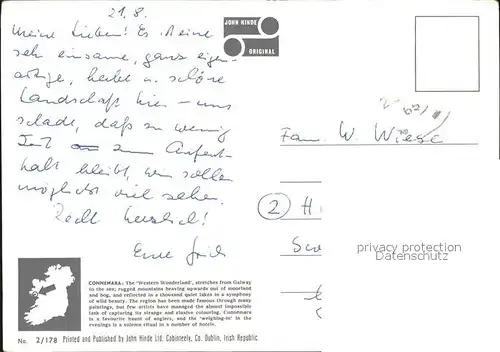 21.8.
Meine Lieben! Es
sehr einsame, ganz eigen-
artige, herbe u. schöne
Landschaft hier – nur
schade, daß so wenig
Zeit zum Aufent-
halt bleibt, wir sollen
möglichst viel sehen.
Recht herzlich!
Eure
JOHN HINDE
ORIGINAL
Fam. W. Wiese
2
privacy protection
VINTAGE-MEMORABILIA.COM
CONNEMARA: The "Western Wonderland", stretches from Galway
to the sea; rugged mountains heaving upwards out of moorland
and bog, and reflected in a thousand quiet lakes in a symphony
of wild beauty. The region has been made famous through many
paintings, but few artists have managed the almost impossible
task of capturing its strange and elusive colouring. Connemara
is a favourite haunt of anglers, and the 'weighing-in' in
the evenings is a solemn ritual in a number of hotels.
No. 2/178 Printed and Published by John Hinde Ltd. Cabinteely, Co. Dublin, Irish Republic